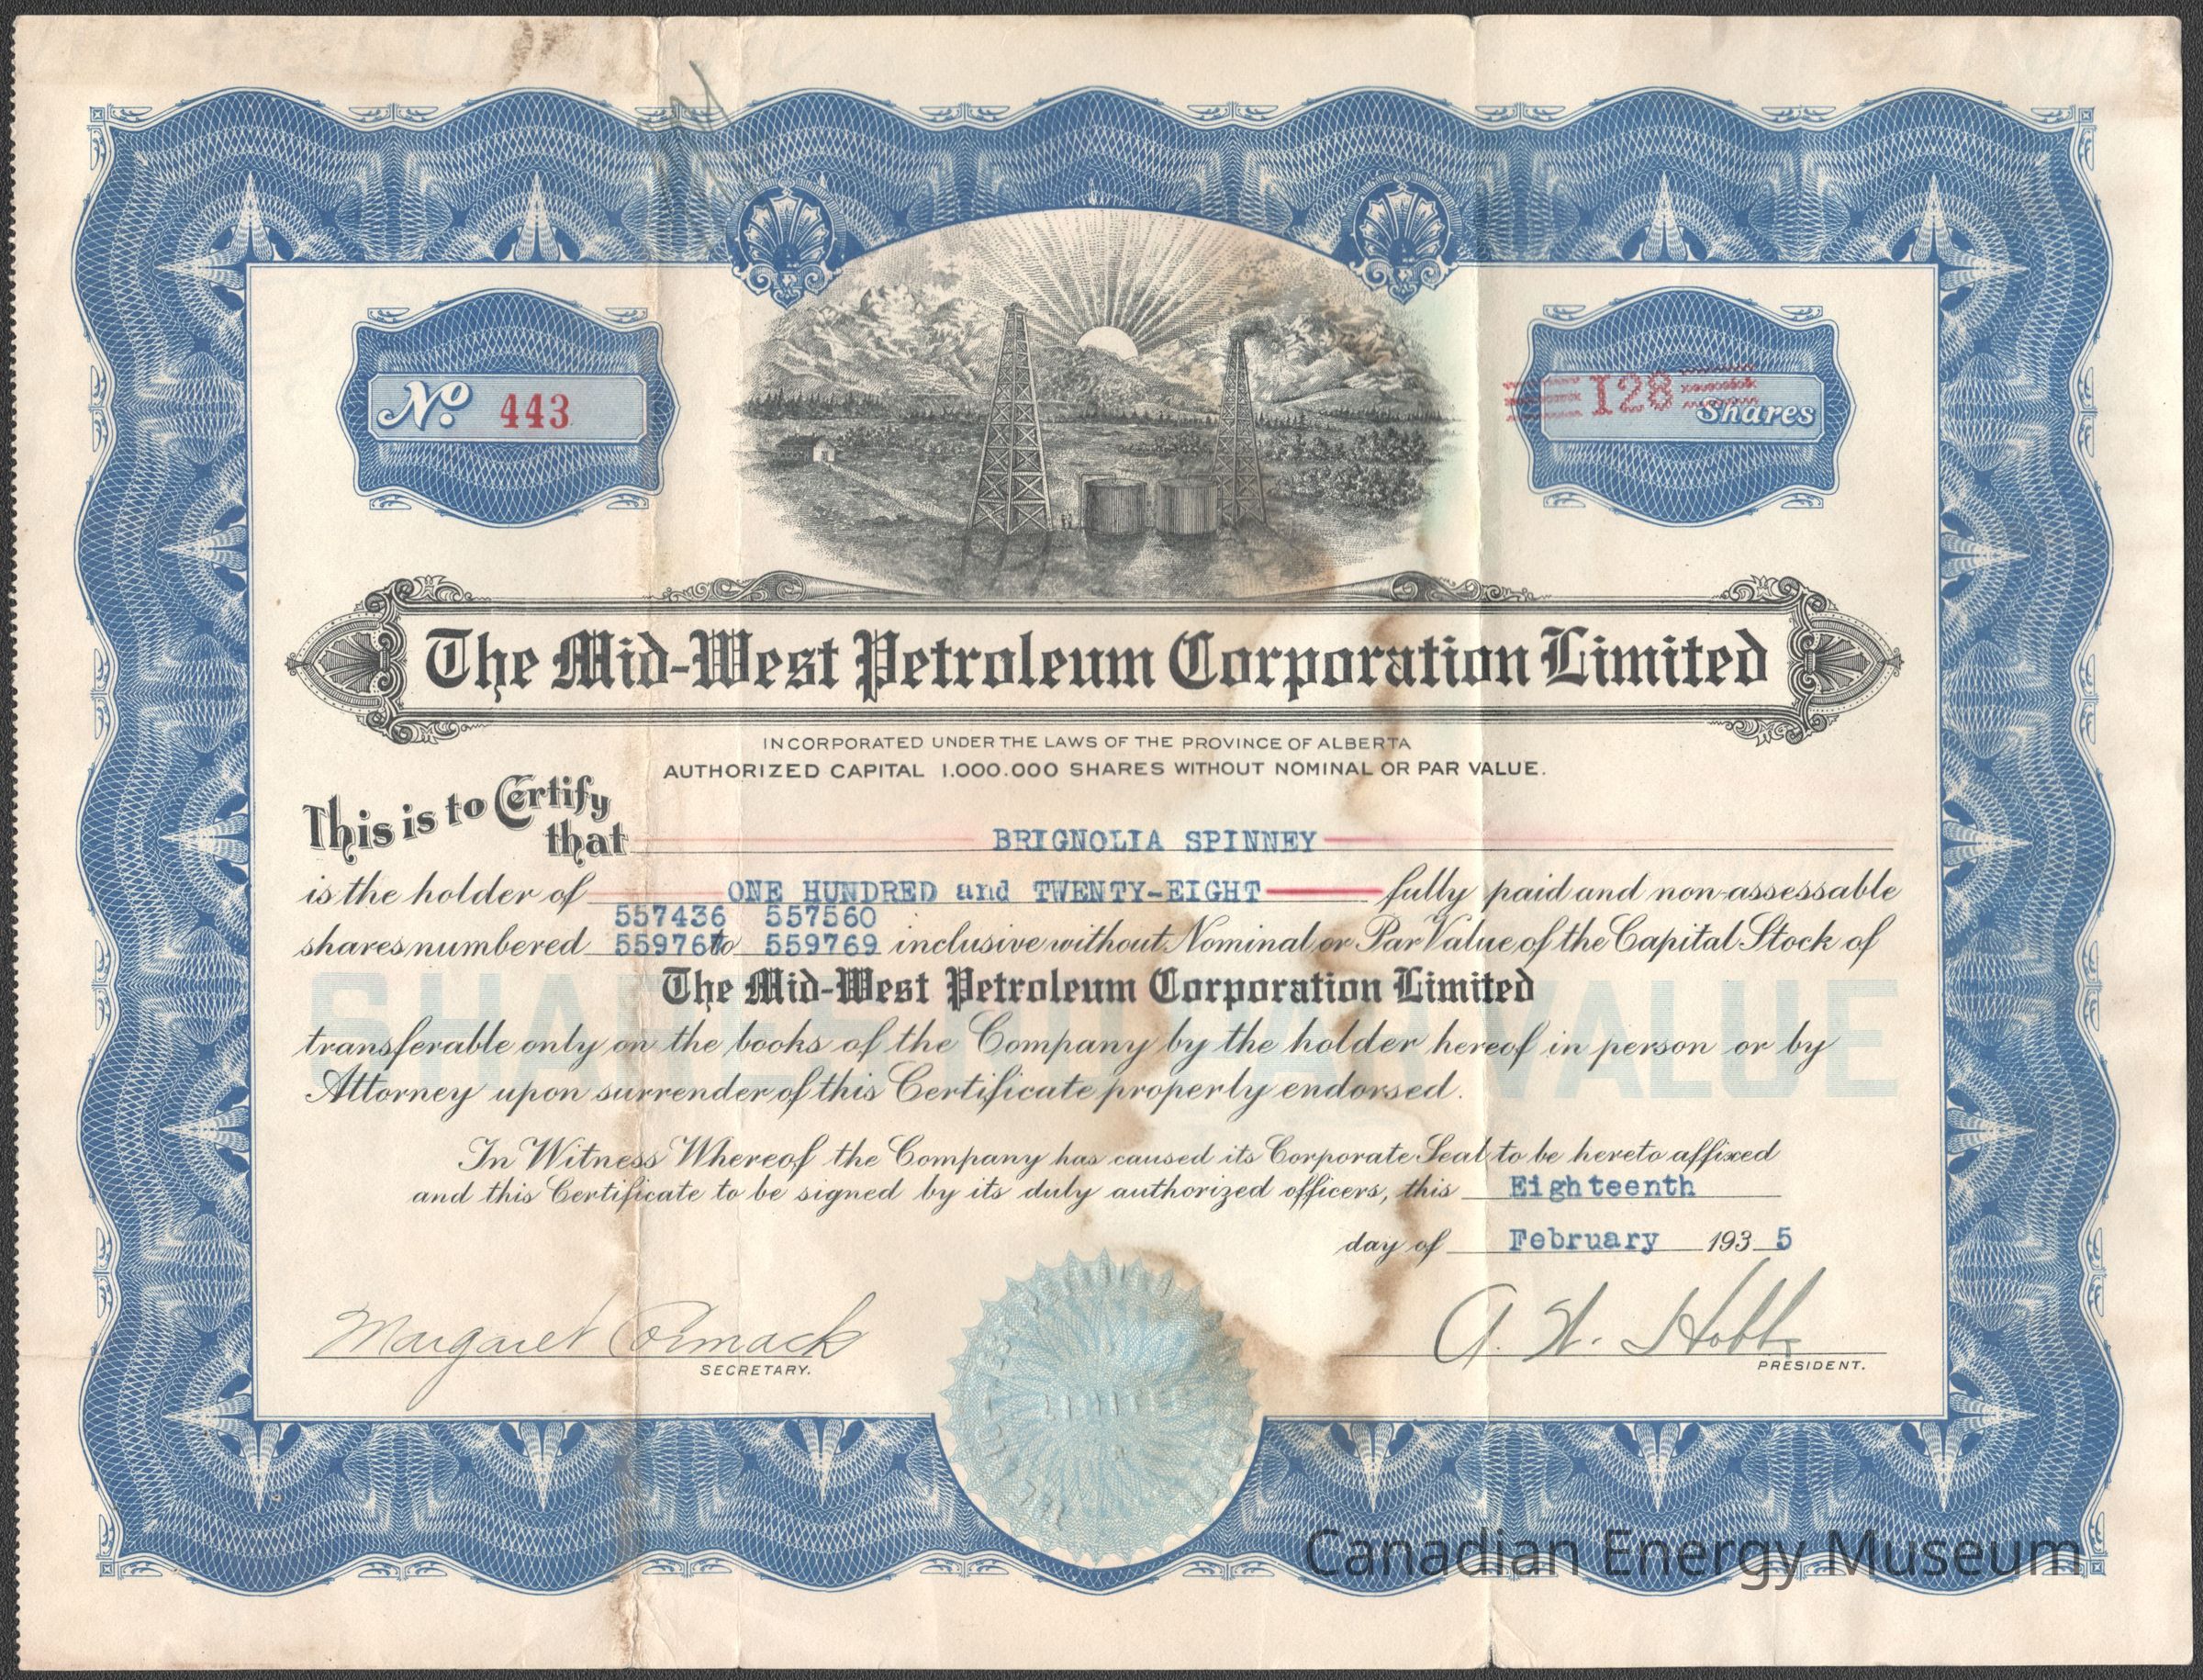 No. 443
128 Shares
The Mid-West Petroleum Corporation Limited
INCORPORATED UNDER THE LAWS OF THE PROVINCE OF ALBERTA
AUTHORIZED CAPITAL 1.000.000 SHARES WITHOUT NOMINAL OR PAR VALUE.
This is to Certify
that BRIGNOLIA SPINNEY
is the holder of ONE HUNDRED and TWENTY-EIGHT fully paid and non-assessable
557436 557560
shares numbered 559767 to 559769 inclusive without Nominal or Par Value of the Capital Stock of
The Mid-West Petroleum Corporation Limited
SHARES NO PAR VALUE
transferable only on the books of the Company by the holder hereof in person or by
Attorney upon surrender of this Certificate properly endorsed.
In Witness Whereof the Company has caused its Corporate Seal to be hereto affixed
and this Certificate to be signed by its duly authorized officers, this Eighteenth
day of February 1935
Margaret Cormack
SECRETARY.
A. W. Hobbs
PRESIDENT.
Canadian Energy Museum